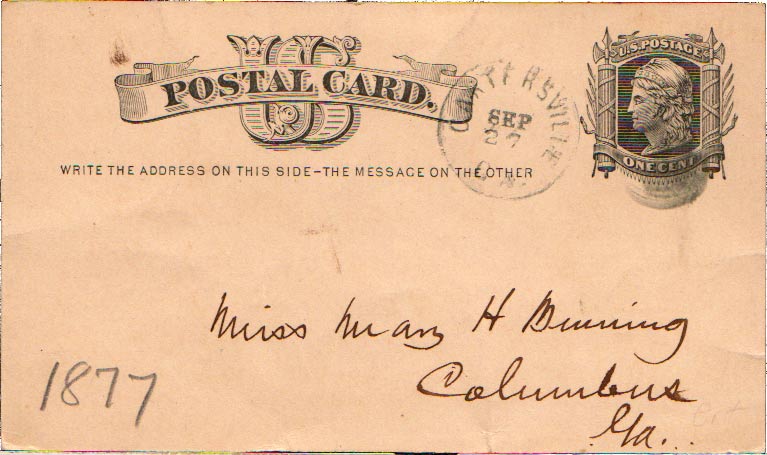 US
POSTAL CARD.
WRITE THE ADDRESS ON THIS SIDE-THE MESSAGE ON THE OTHER
CARTERSVILLE
SEP
27
GA.
U.S. POSTAGE
ONE CENT
Miss Mary H Benning
Columbus
Ga.
1877